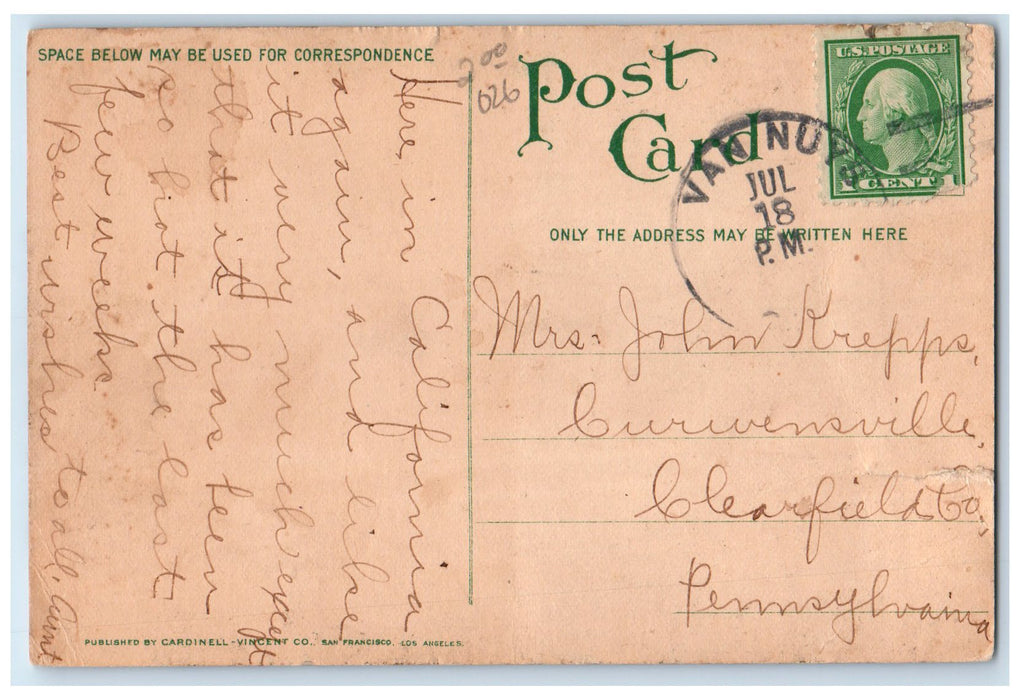 SPACE BELOW MAY BE USED FOR CORRESPONDENCE
Here, in California
again, and like
it very much except
that it has been
so hot the last
few weeks.
Best wishes to all. Aunt
2.00
026
Post
Card
U.S. POSTAGE
1 CENT 1
VAN NUYS
JUL
18
P.M.
ONLY THE ADDRESS MAY BE WRITTEN HERE
Mrs. John Krepps,
Curwensville,
Clearfield Co,
Pennsylvaina
PUBLISHED BY CARDINELL-VINCENT CO., SAN FRANCISCO, LOS ANGELES.